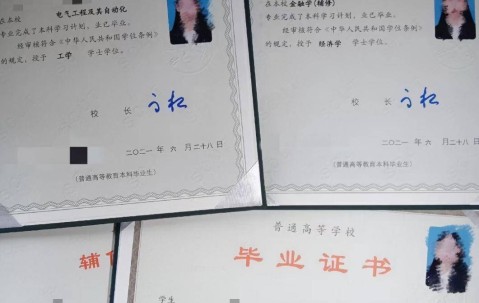 在本校 电气工程及其自动化
专业完成了本科学习计划，业已毕业，
经审核符合《中华人民共和国学位条例》
的规定，授予 工学 学士学位。
校 长
二〇二一年 六 月 二十八 日
(普通高等教育本科毕业生)
在本校 金融学(辅修)
专业完成了本科学习计划，业已毕业。
经审核符合《中华人民共和国学位条例》
的规定，授予 经济学 学士学位。
校 长
二〇二一年 六 月 二十八 日
(普通高等教育本科毕业生)
辅
普通高等学校
毕业证书
学生